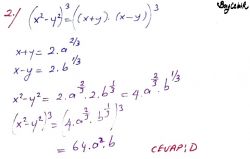 2.) (x²-y²)³=((x+y).(x-y))³
x+y=2.a^(2/3)
x-y=2.b^(1/3)
x²-y²=2.a^(2/3).2.b^(1/3)=4.a^(2/3).b^(1/3)
(x²-y²)³=(4.a^(2/3).b^(1/3))³
=64.a².b
CEVAP:D